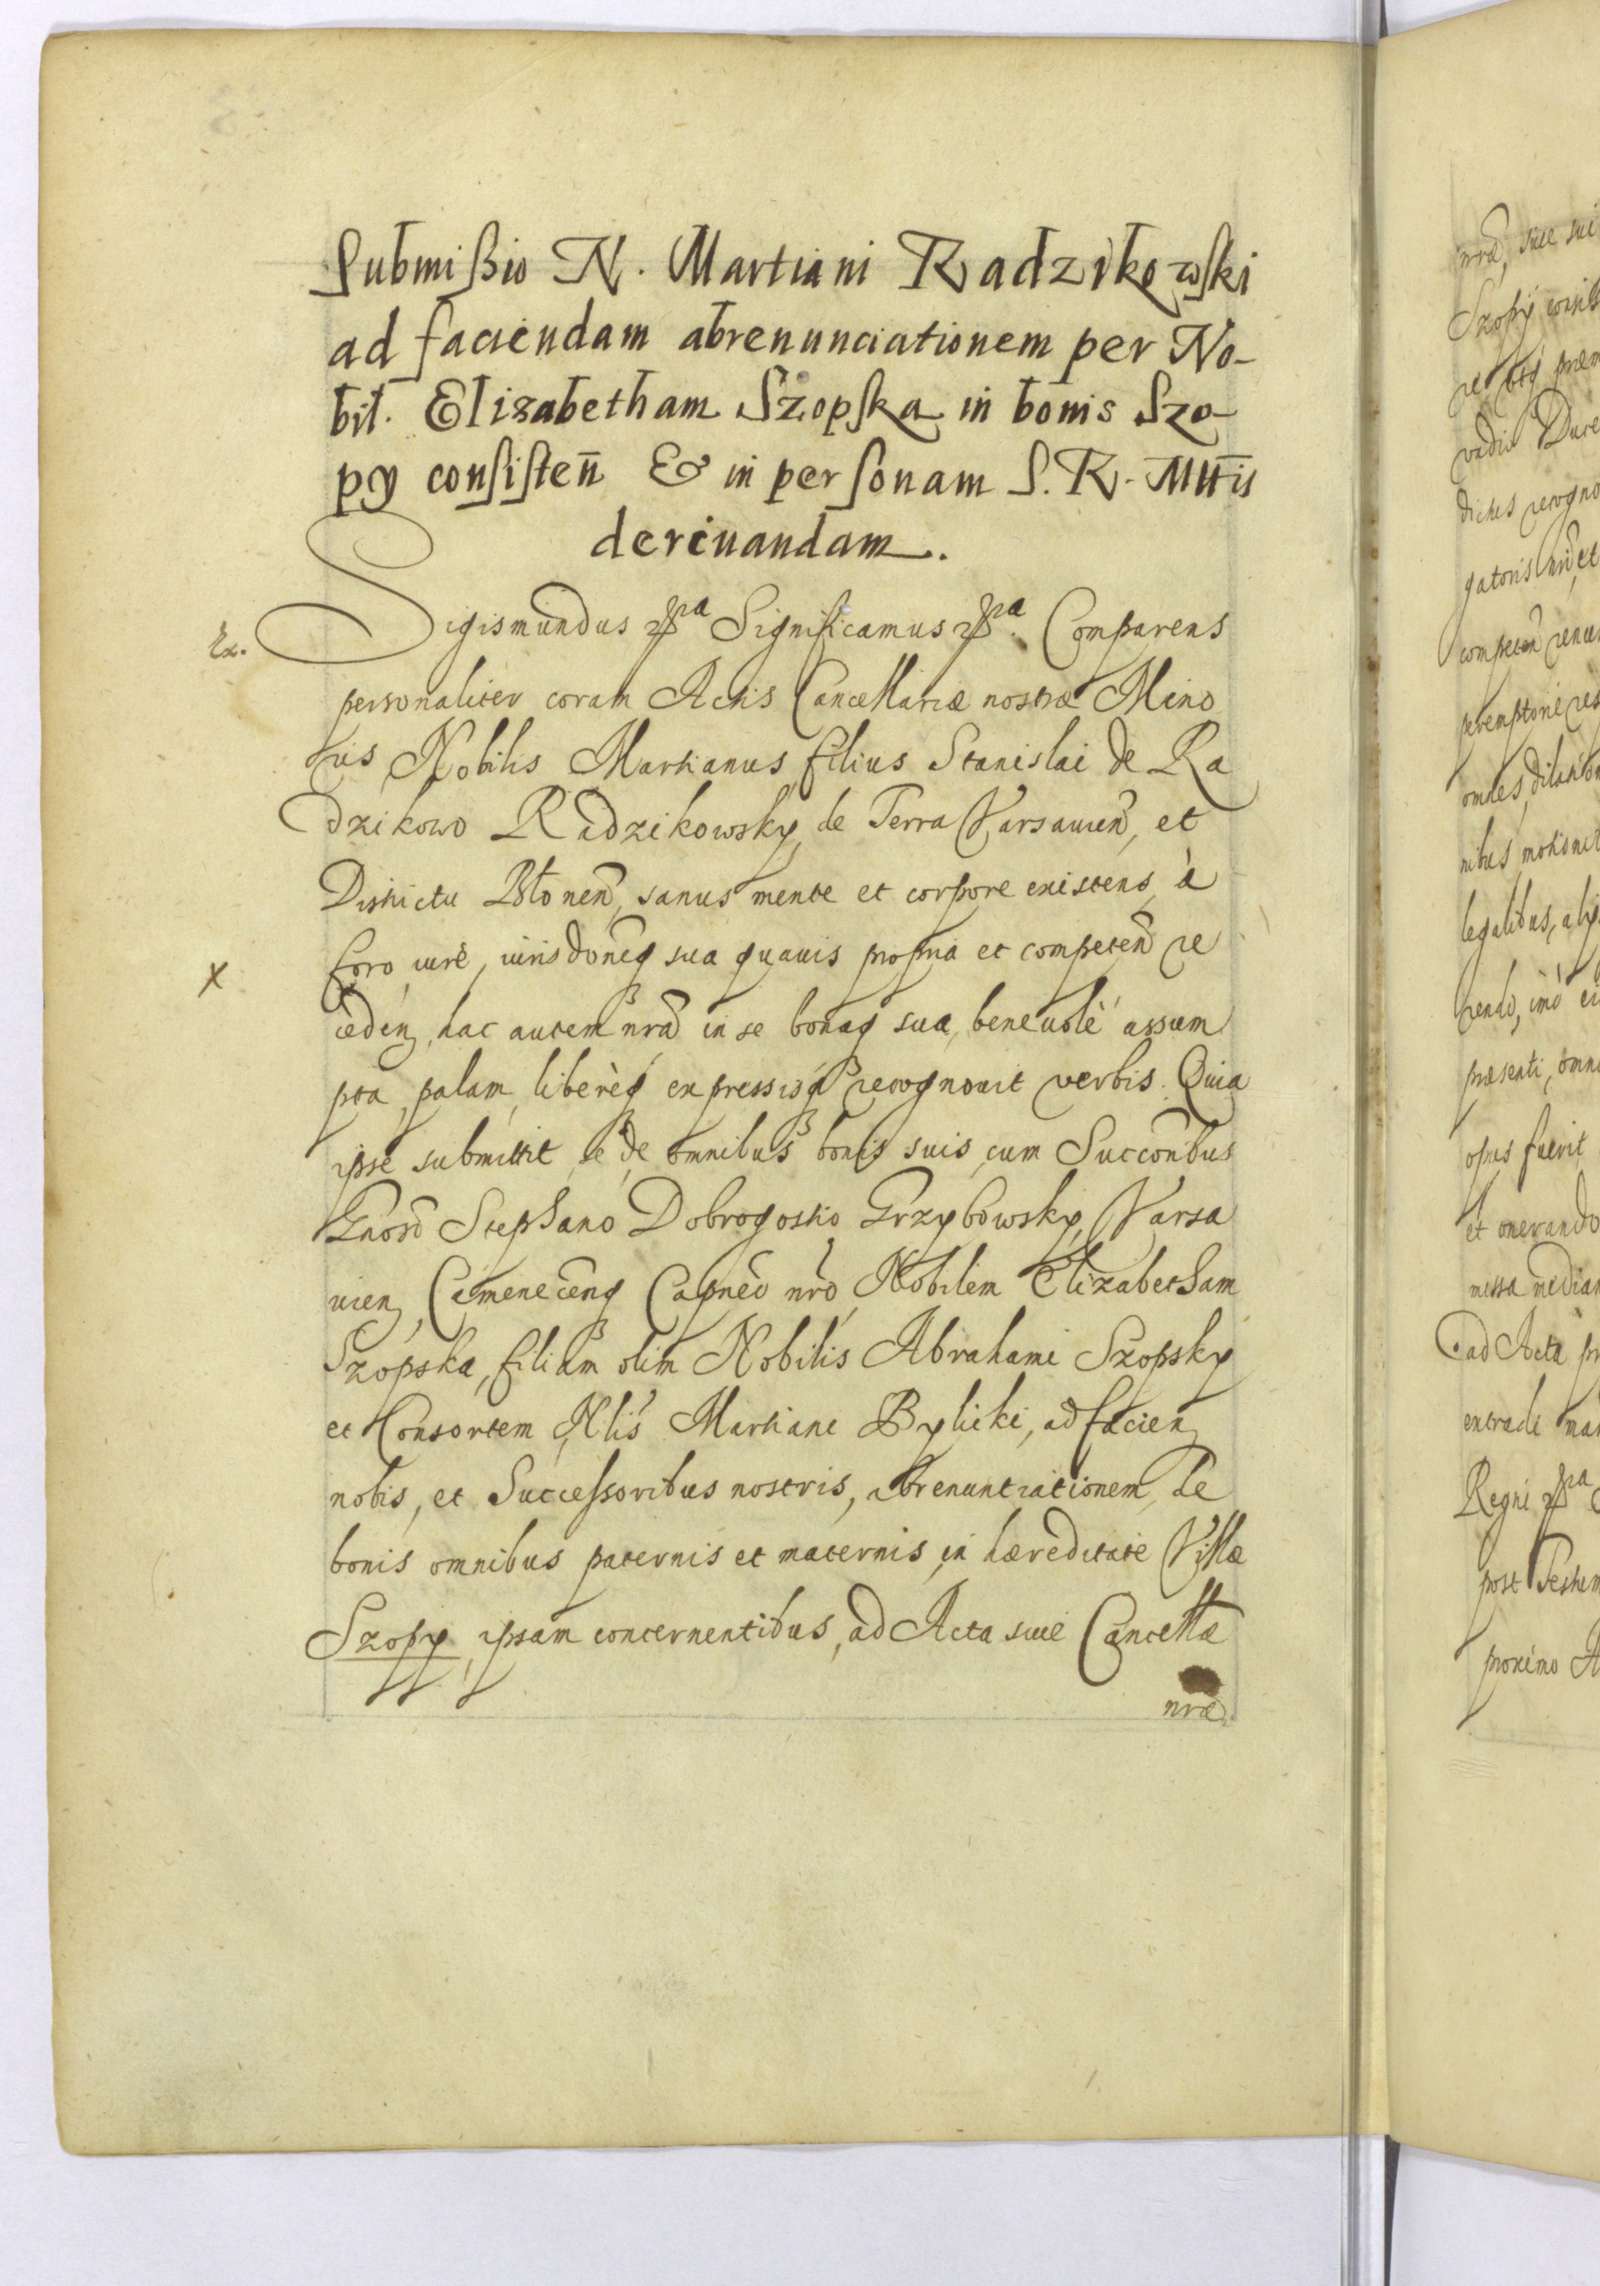 Submissio N. Martiani Radzikowski
ad faciendam abrenunciationem per No-
bil. Elizabetham Szopska in bonis Szo-
py consisten̄ & in personam S. R. Mttis
deriuandam.
Ex.
Sigismundus Significamus Comparens
personaliter coram Actis Cancellariæ nostræ Mino
ris Nobilis Martianus filius Stanislai de Ra
dzikowo Radzikowsky, de Terra Varsauien̄, et
Districtu Błonen̄, sanus mente et corpore existens, à
foro, iurē, iurisdōneq sua quauis propria et competen̄ re
ceden, hac autem nrā in se bonaq sua, beneuolè assum
pta, palam, liberèq expressisq recognouit verbis. Quia
ipse submittit se de omnibus bonis suis, cum Succōribus
Gnoso Stephano Dobrogostio Grzybowsky, Varsa
uien, Camenecenq Capneo nro, Nobilem Elizabetham
Szopska, filiam olim Nobilis Abrahami Szopsky
et Consortem Nlis Martiani Bylicki, ad facien
nobis, et Successoribus nostris, abrenuntiationem, de
bonis omnibus paternis et maternis, in hæreditate Villæ
Szopy, ipsam concernentibus, ad Acta siue Cancellæ
nræ
X
nrā, siue
Szopy
dictis recogno
gatoris nri, et
competen̄
omnes, dilation
nibus, motionib
legalibus,
præsenti, omn
opus fuerit
et onerando
missa median
ad Acta pr
Regni
post Festum
proximo A